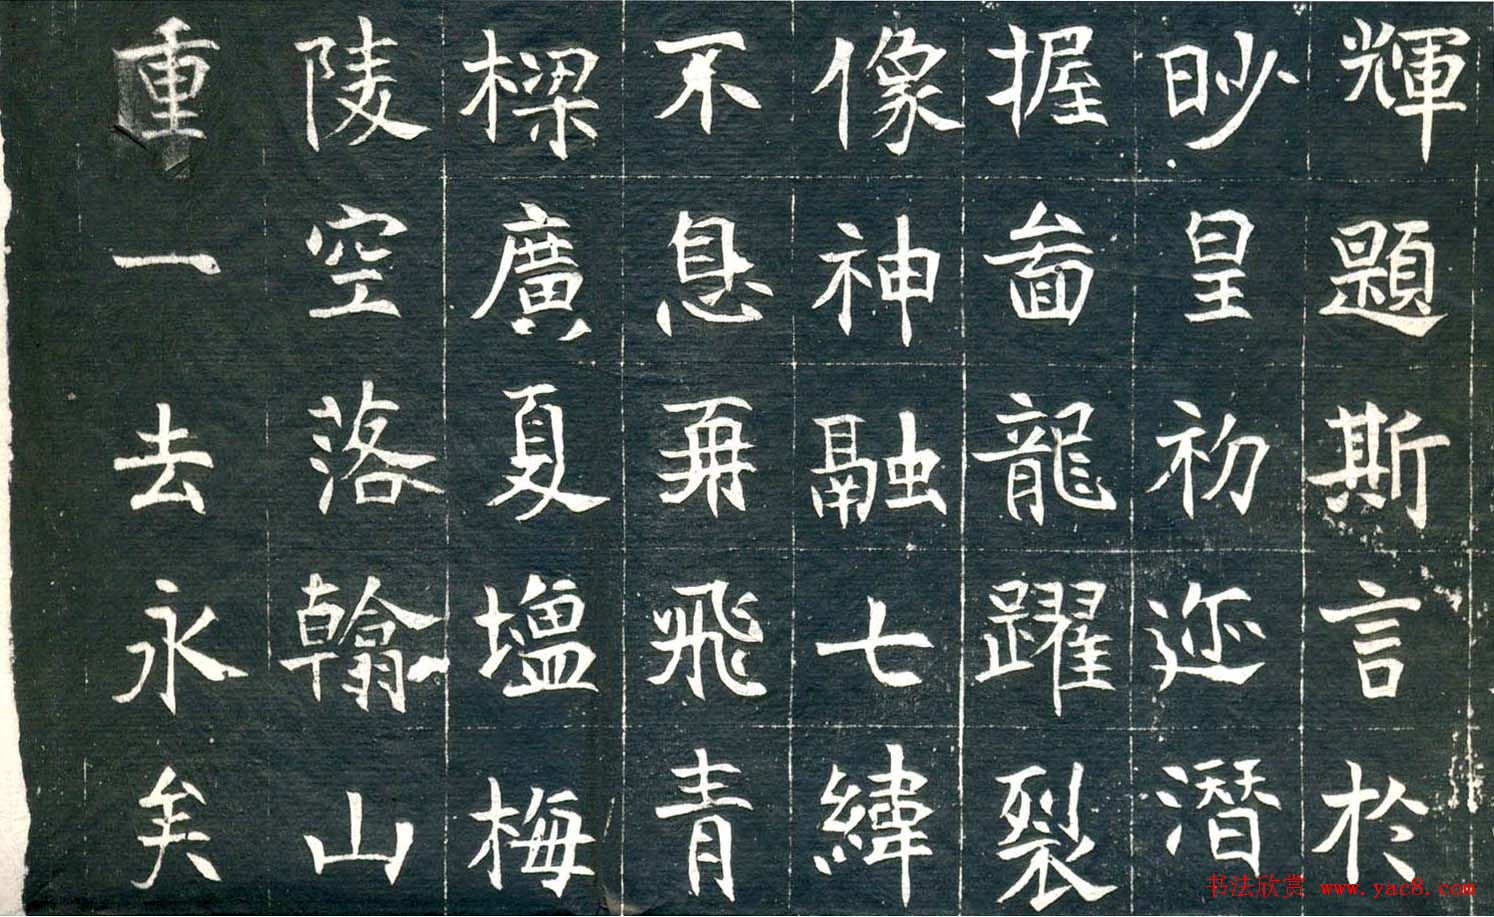 輝題斯言於
眇皇初迩潜
握啚龍躍裂
像神融七緯
不息再飛青
樑廣夏塩梅
陵空落翰山
重一去永矣
书法欣赏 www.yac8.com